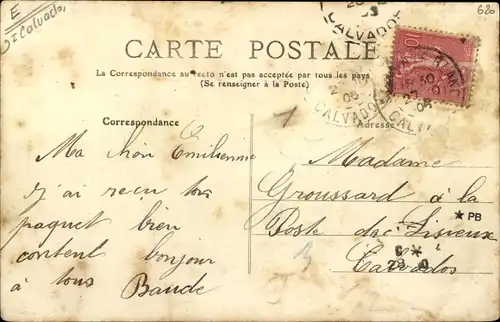 E
Calvados
620
CARTE POSTALE
La Correspondance au recto n'est pas acceptée par tous les pays
(Se renseigner à la Poste)
CALVADOS
10
CALVADOS
CALV
Correspondance
Adresse
1
Ma bon Emilienne
j'ai reçu ton
paquet bien
content bonjour
à tous Baude
Madame
Groussard à la
Poste de Lisieux
Calvados
★ PB
6 *